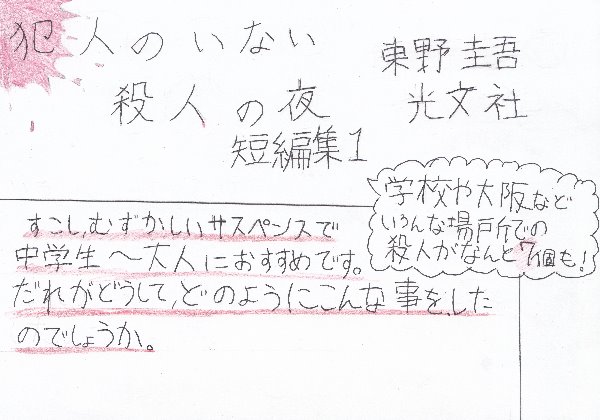 犯人のいない
殺人の夜
短編集1
東野圭吾
光文社
学校や大阪など
いろんな場所での
殺人がなんと7個も!
すこしむずかしいサスペンスで
中学生〜大人におすすめです。
だれがどうして、どのようにこんな事をした
のでしょうか。